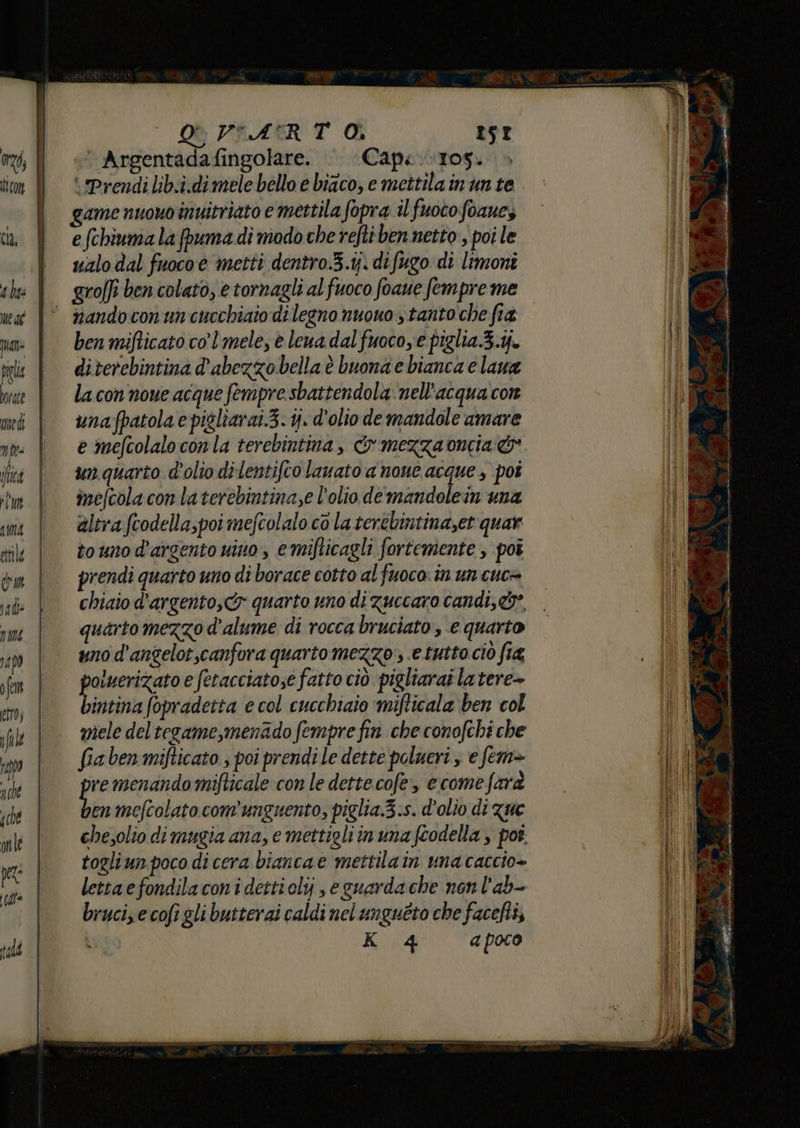 QVARTO. 151
Argentada ſingolare. Cap. 105.
Prendi lib.i.di mele bello e biāco, e mettila in un te
game nuouo inuitriato e mettila ſopra il fuoco ſoaue,
e ſchiuma la ſpuma di modo che reſti ben netto, poi le
ualo dal fuoco e metti dentro.℥.ij. di ſugo di limoni
groſſi ben colato, e tornagli al fuoco ſoaue ſempre me
nando con un cucchiaio di legno nuouo, tanto che ſia
ben miſticato co'l mele, e leua dal fuoco, e piglia.℥.ij.
di terebintina d'abezzo bella è buona e bianca e laua
la con noue acque ſempre sbattendola nell'acqua con
una ſpatola e pigliarai.℥. ij. d'olio de mandole amare
e meſcolalo con la terebintina, & mezza oncia &
un quarto d'olio di lentiſco lauato a noue acque, poi
meſcola con la terebintina,e l'olio de mandole in una
altra ſcodella,poi meſcolalo cō la terēbintina,et quar
to uno d'argento uiuo, e miſticagli fortemente, poi
prendi quarto uno di borace cotto al fuoco in un cuc-
chiaio d'argento,& quarto uno di zuccaro candi,&
quarto mezzo d'alume di rocca bruciato, e quarto
uno d'angelot,canfora quarto mezzo, e tutto ciò ſia
poluerizato e ſetacciato,e fatto ciò pigliarai la tere-
bintina ſopradetta e col cucchiaio miſticala ben col
miele del tegame,menādo ſempre fin che conoſchi che
ſia ben miſticato, poi prendi le dette polueri, e ſem-
pre menando miſticale con le dette coſe, e come ſarà
ben meſcolato com'unguento, piglia.℥.s. d'olio di zuc
che,olio di mugia ana, e mettigli in una ſcodella, poi
togli un poco di cera bianca e mettila in una caccio-
letta e fondila con i detti olij, e guarda che non l'ab-
bruci, e coſi gli butterai caldi nel unguēto che faceſti,
K 4 a poco